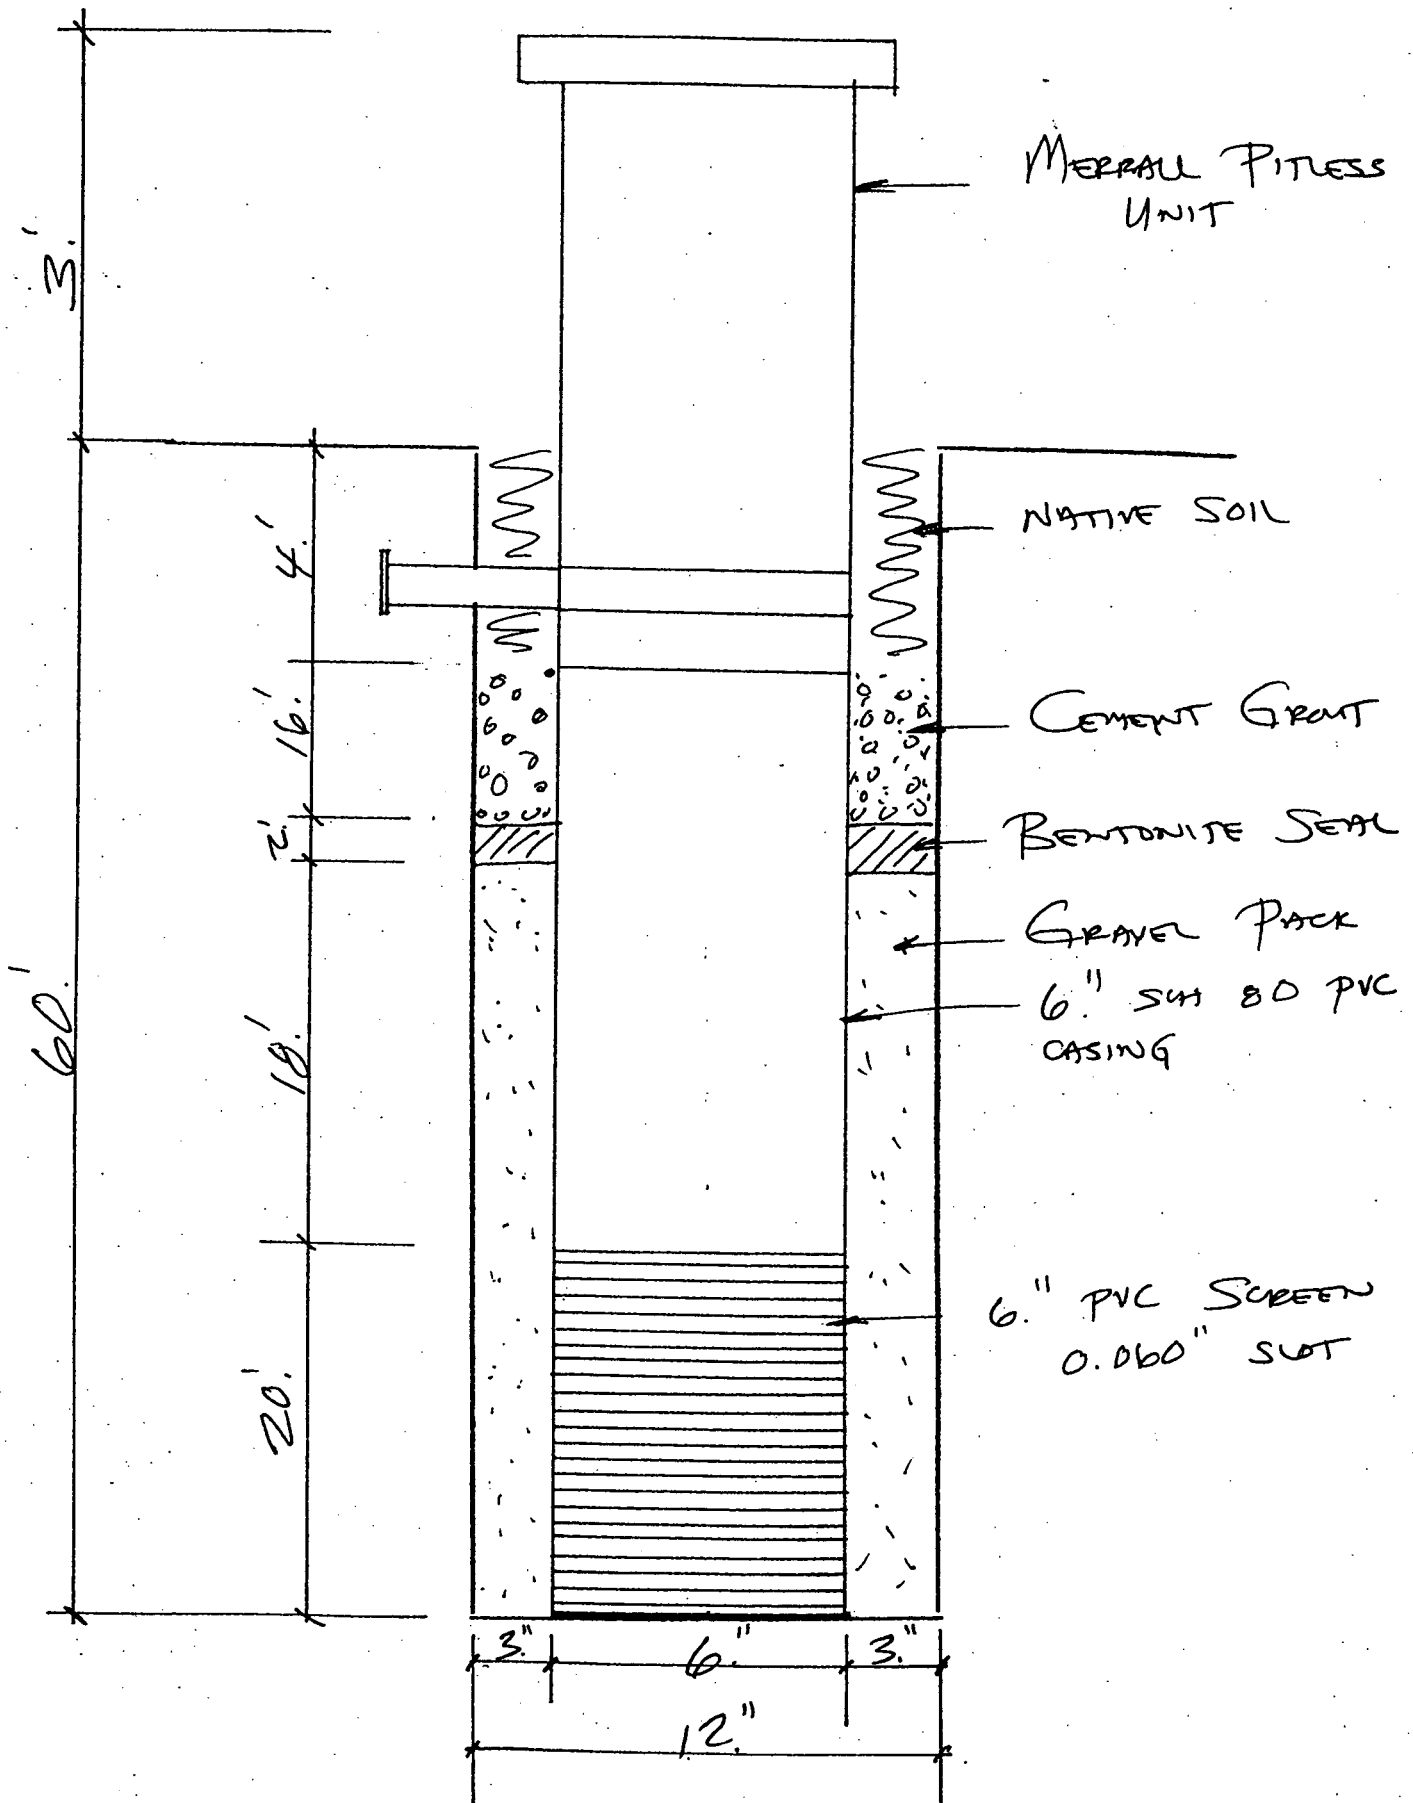 MERRALL PITLESS
UNIT
3.'
NATIVE SOIL
4.'
CEMENT GROUT
16.'
BENTONITE SEAL
2.'
GRAVEL PACK
6." SCH 80 PVC
CASING
60.'
18.'
6." PVC SCREEN
0.060" SLOT
20.'
3." 6." 3."
12."